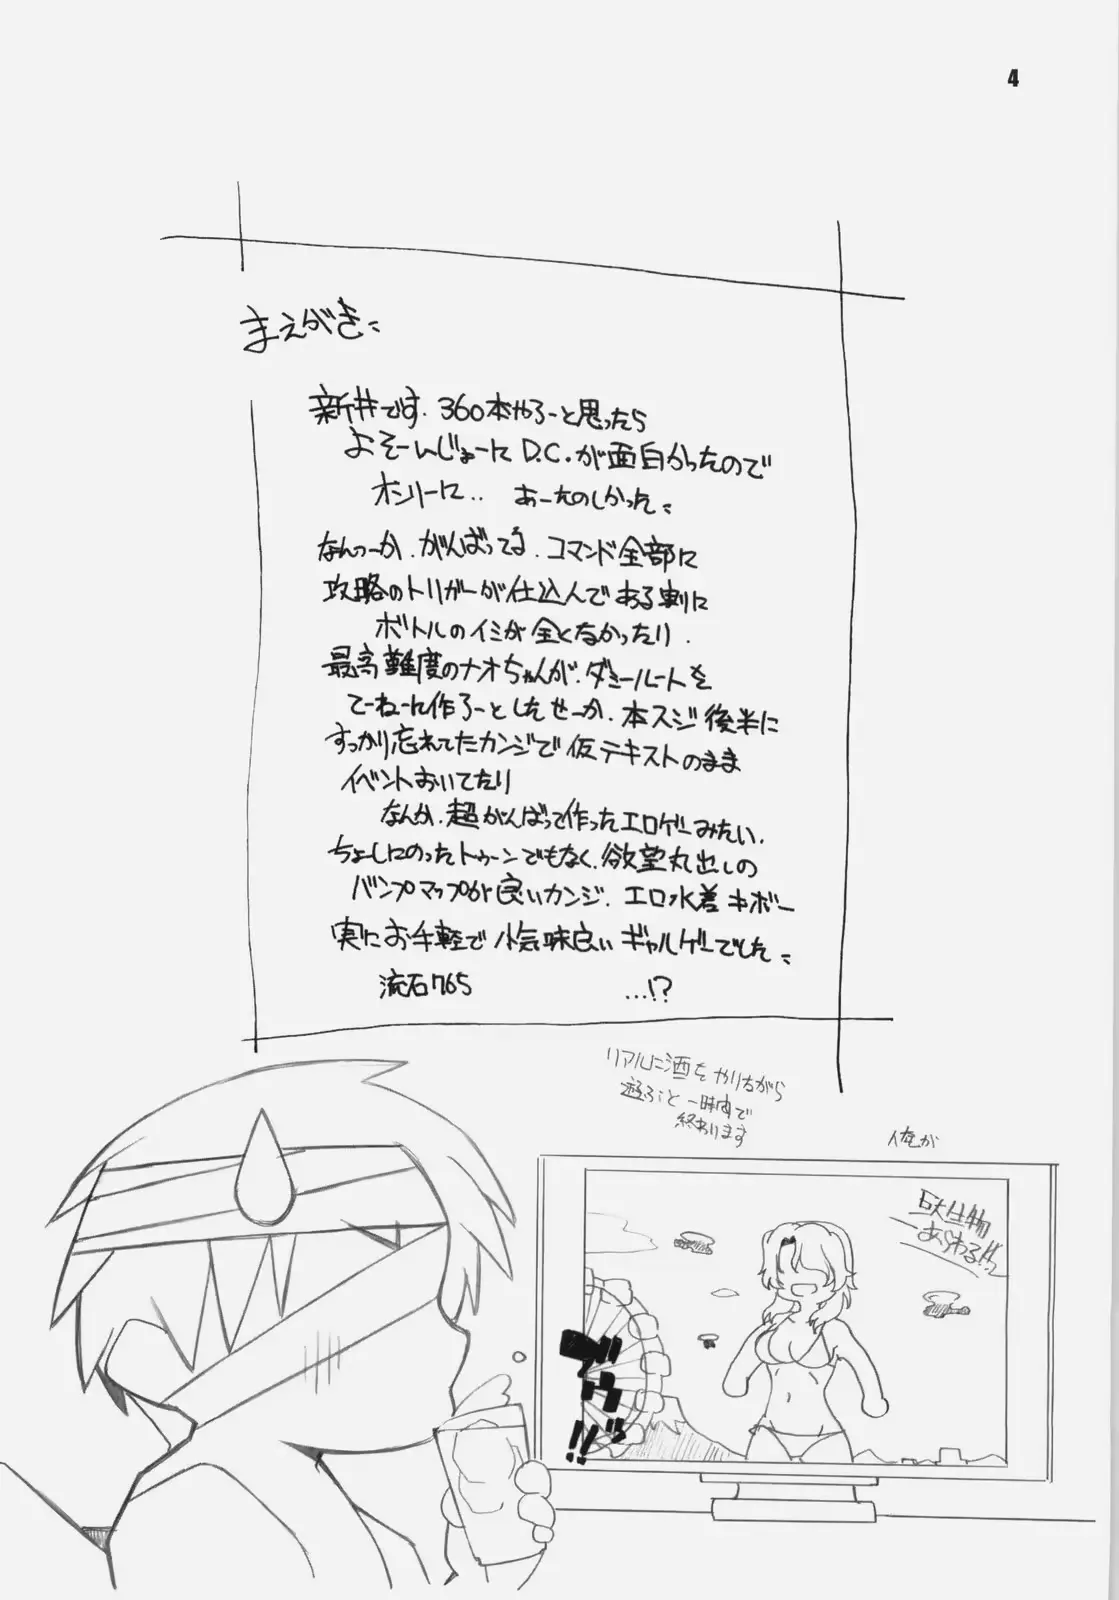 4
まえがき:
新井です. 360本やろーと思ったら
よそーいじょーに D.C.が面白かったので
オンリーに.. あーたのしかった:
なんつーか.がんばってる.コマンド全部に
攻略のトリガーが仕込んである割に
ボトルのイミが全くなかったり.
最高難度のナオちゃんが.ダミールートを
てーねーに作ろーとしたせーか.本スジ後半に
すっかり忘れてたカンジで仮テキストのまま
イベントおいてたり
なんか.超がんばって作ったエロゲーみたい.
ちょーしにのったトゥーンでもなく.欲望丸出しの
バンプマップが良いカンジ.エロ水着キボー
実にお手軽で小気味良いギャルゲーでした:
流石765 …!?
リアルに酒をやりながら
遊ぶと一時間で
終わります
俺が
巨大生物
あらわる!!